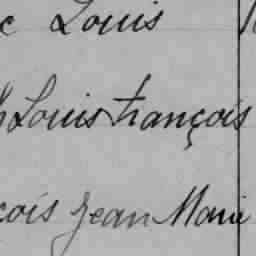 c Louis
h Louis françois
çois Jean Marie